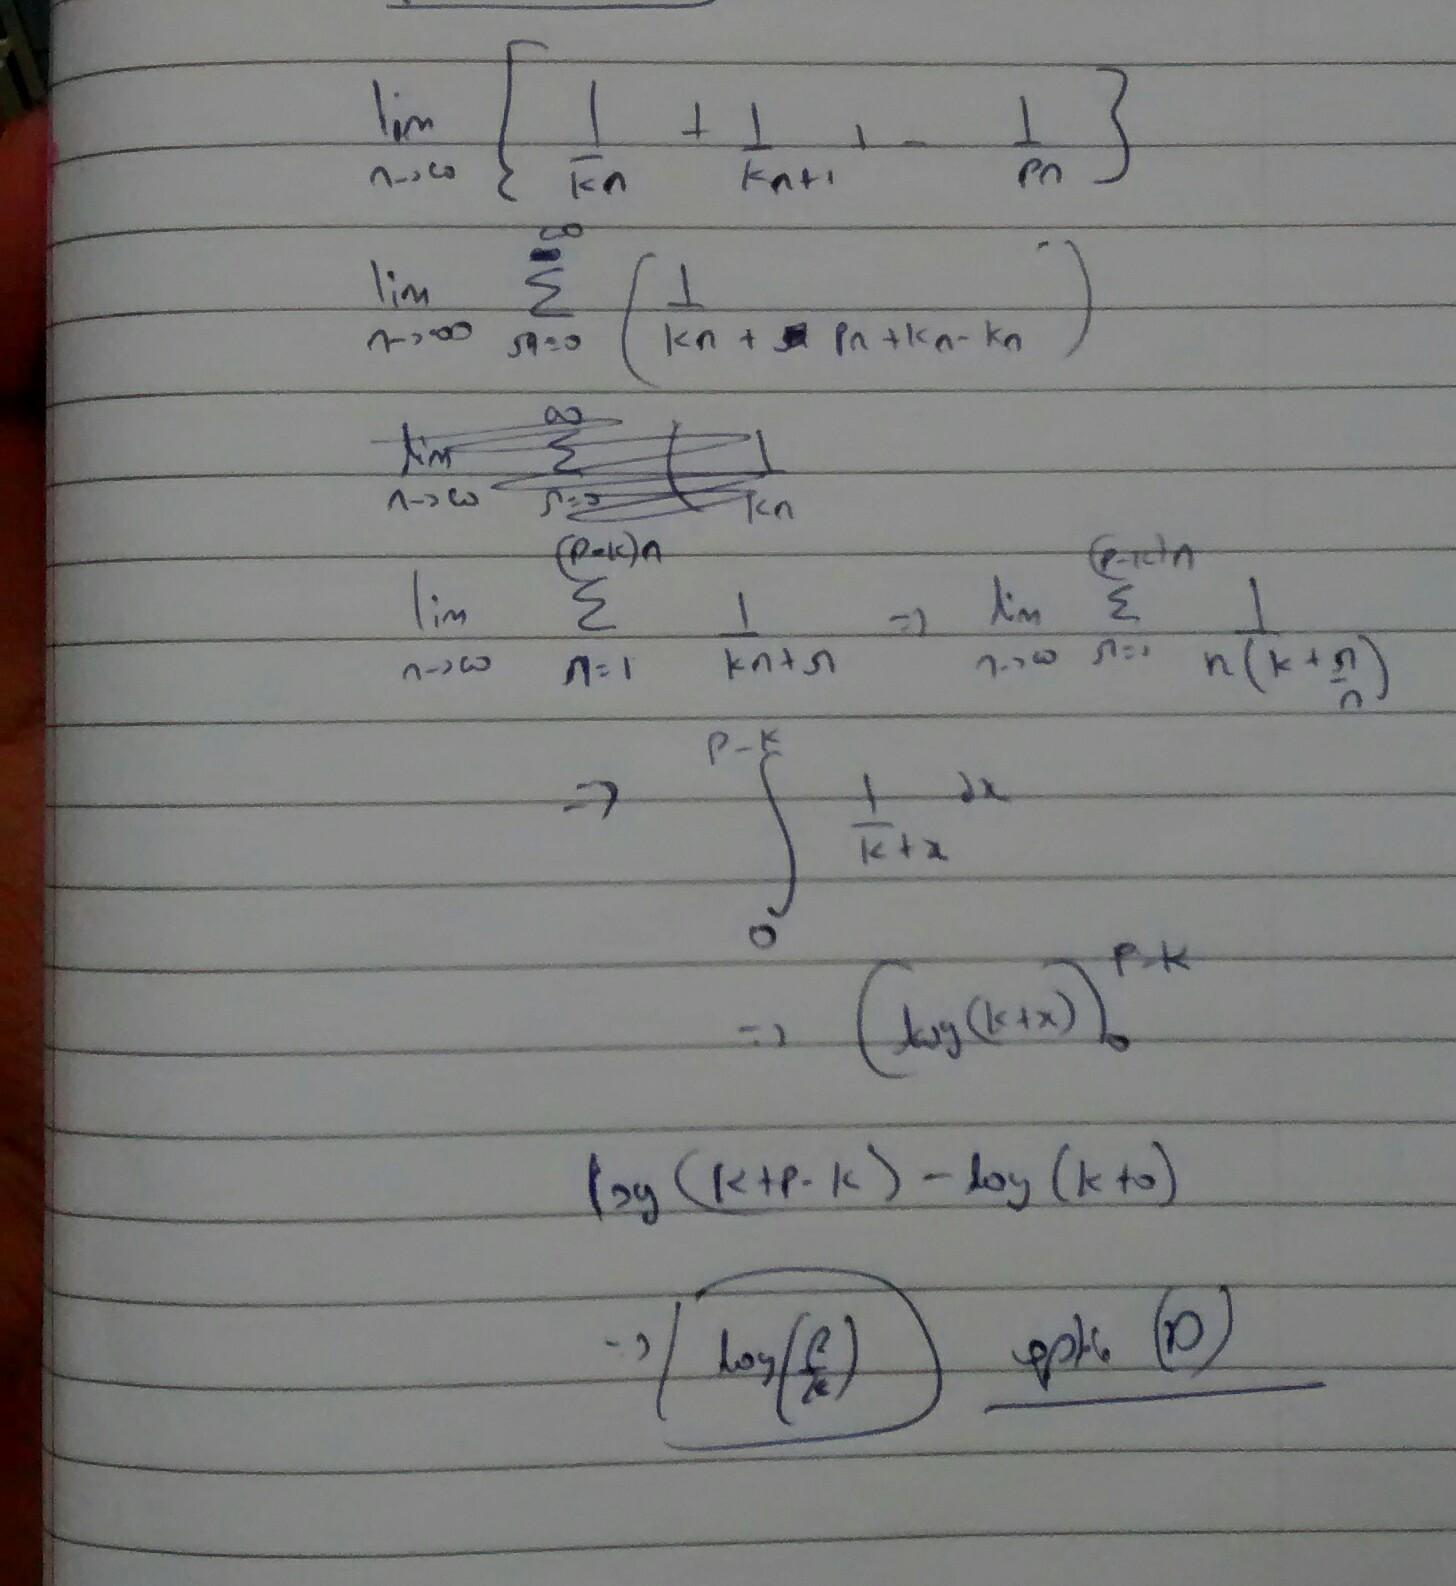 lim n→∞ { 1/kn + 1/kn+1 + - 1/pn }
lim n→∞ ∞ Σ r=0 ( 1/kn + pn + kn - kn )
lim n→∞ ∞ Σ r=0 ( 1/kn
lim n→∞ (p-k)n Σ r=1 1/kn+r => lim n→∞ (p-k)n Σ r=1 1/n(k+r/n)
=> ∫ 0 p-k 1/k+x dx
=> (log(k+x)) 0 p-k
log(k+p-k) - log(k+0)
=> log(p/k) (D)